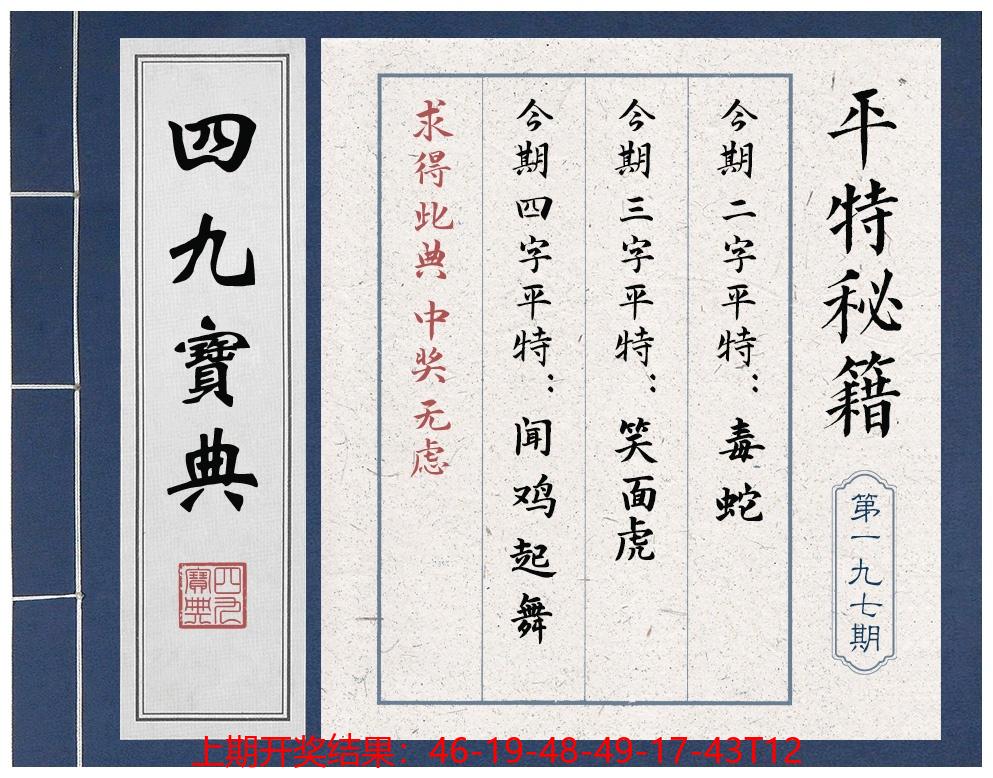 平特秘籍
第一九七期
今期二字平特：毒蛇
今期三字平特：笑面虎
今期四字平特：闻鸡起舞
求得此典 中奖无虑
四九寶典
四九寶典
上期开奖结果：46-19-48-49-17-43T12